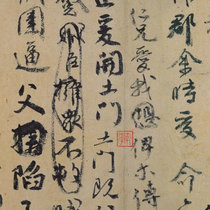 郡余時受命
仁兄愛我俾尔傳
爰開土門土門既
賊臣擁衆不救
圍逼父陷子